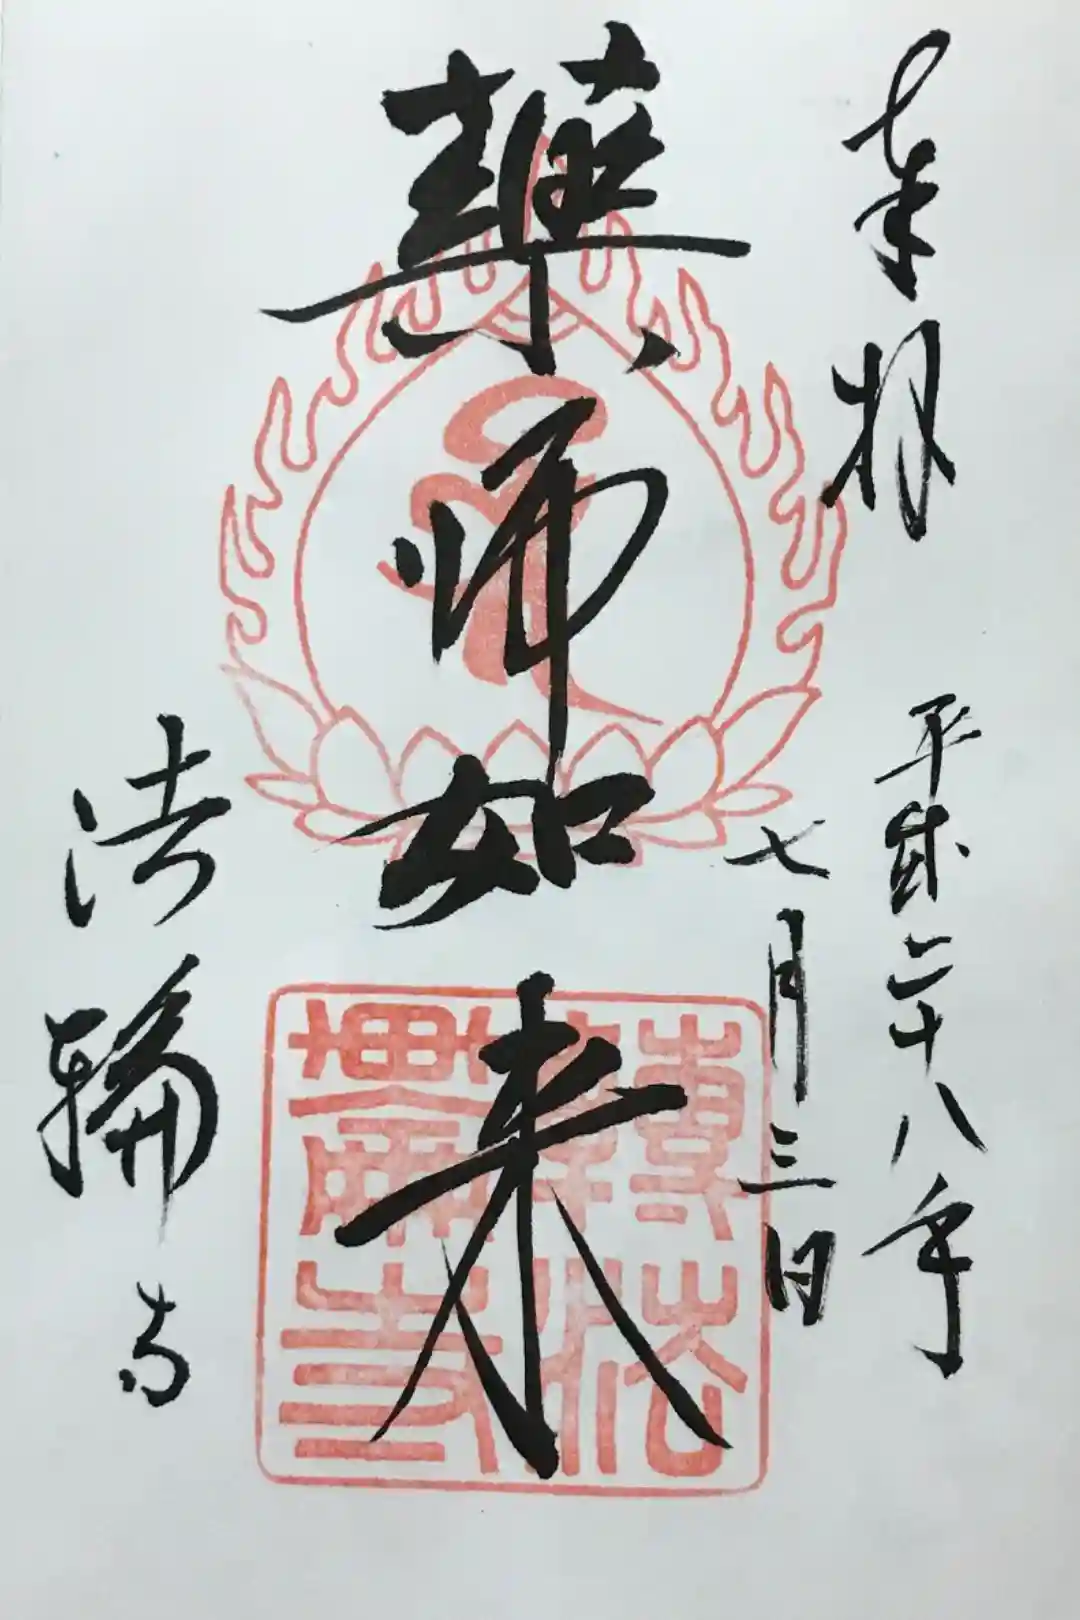 奉拝
平成二十八年
七月三日
薬師如来
法輪寺